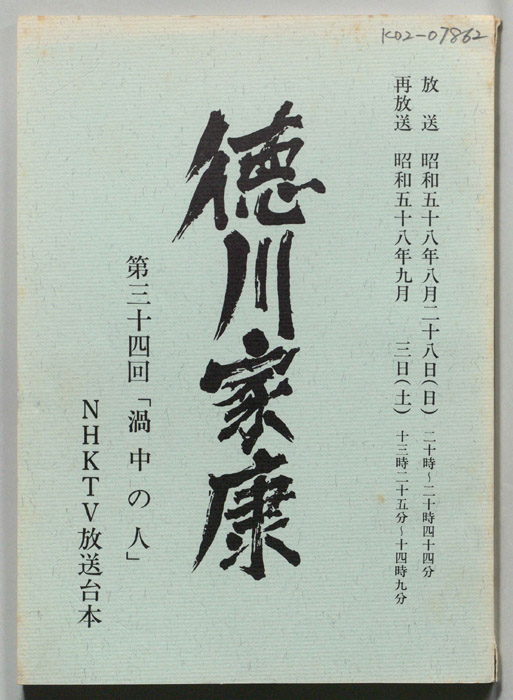 KD2-07862
放送 昭和五十八年八月二十八日(日) 二十時~二十時四十四分
再放送 昭和五十八年九月 三日(土) 十三時二十五分~十四時九分
徳川家康
第三十四回「渦中の人」
NHKTV放送台本